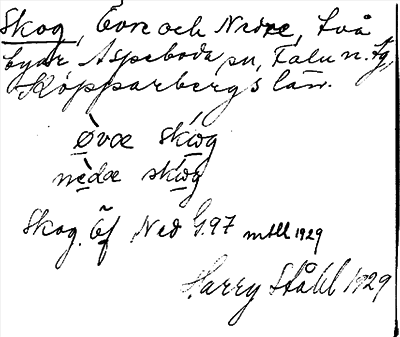 Skog, Övre och Nedre, två
byar Aspeboda sn, Falu n. tg,
Kopparbergs län.
øvæ skωg
nèdæ skωg
Skog. Öf Ned G.97 mtll 1929
Harry Ståhl 1929